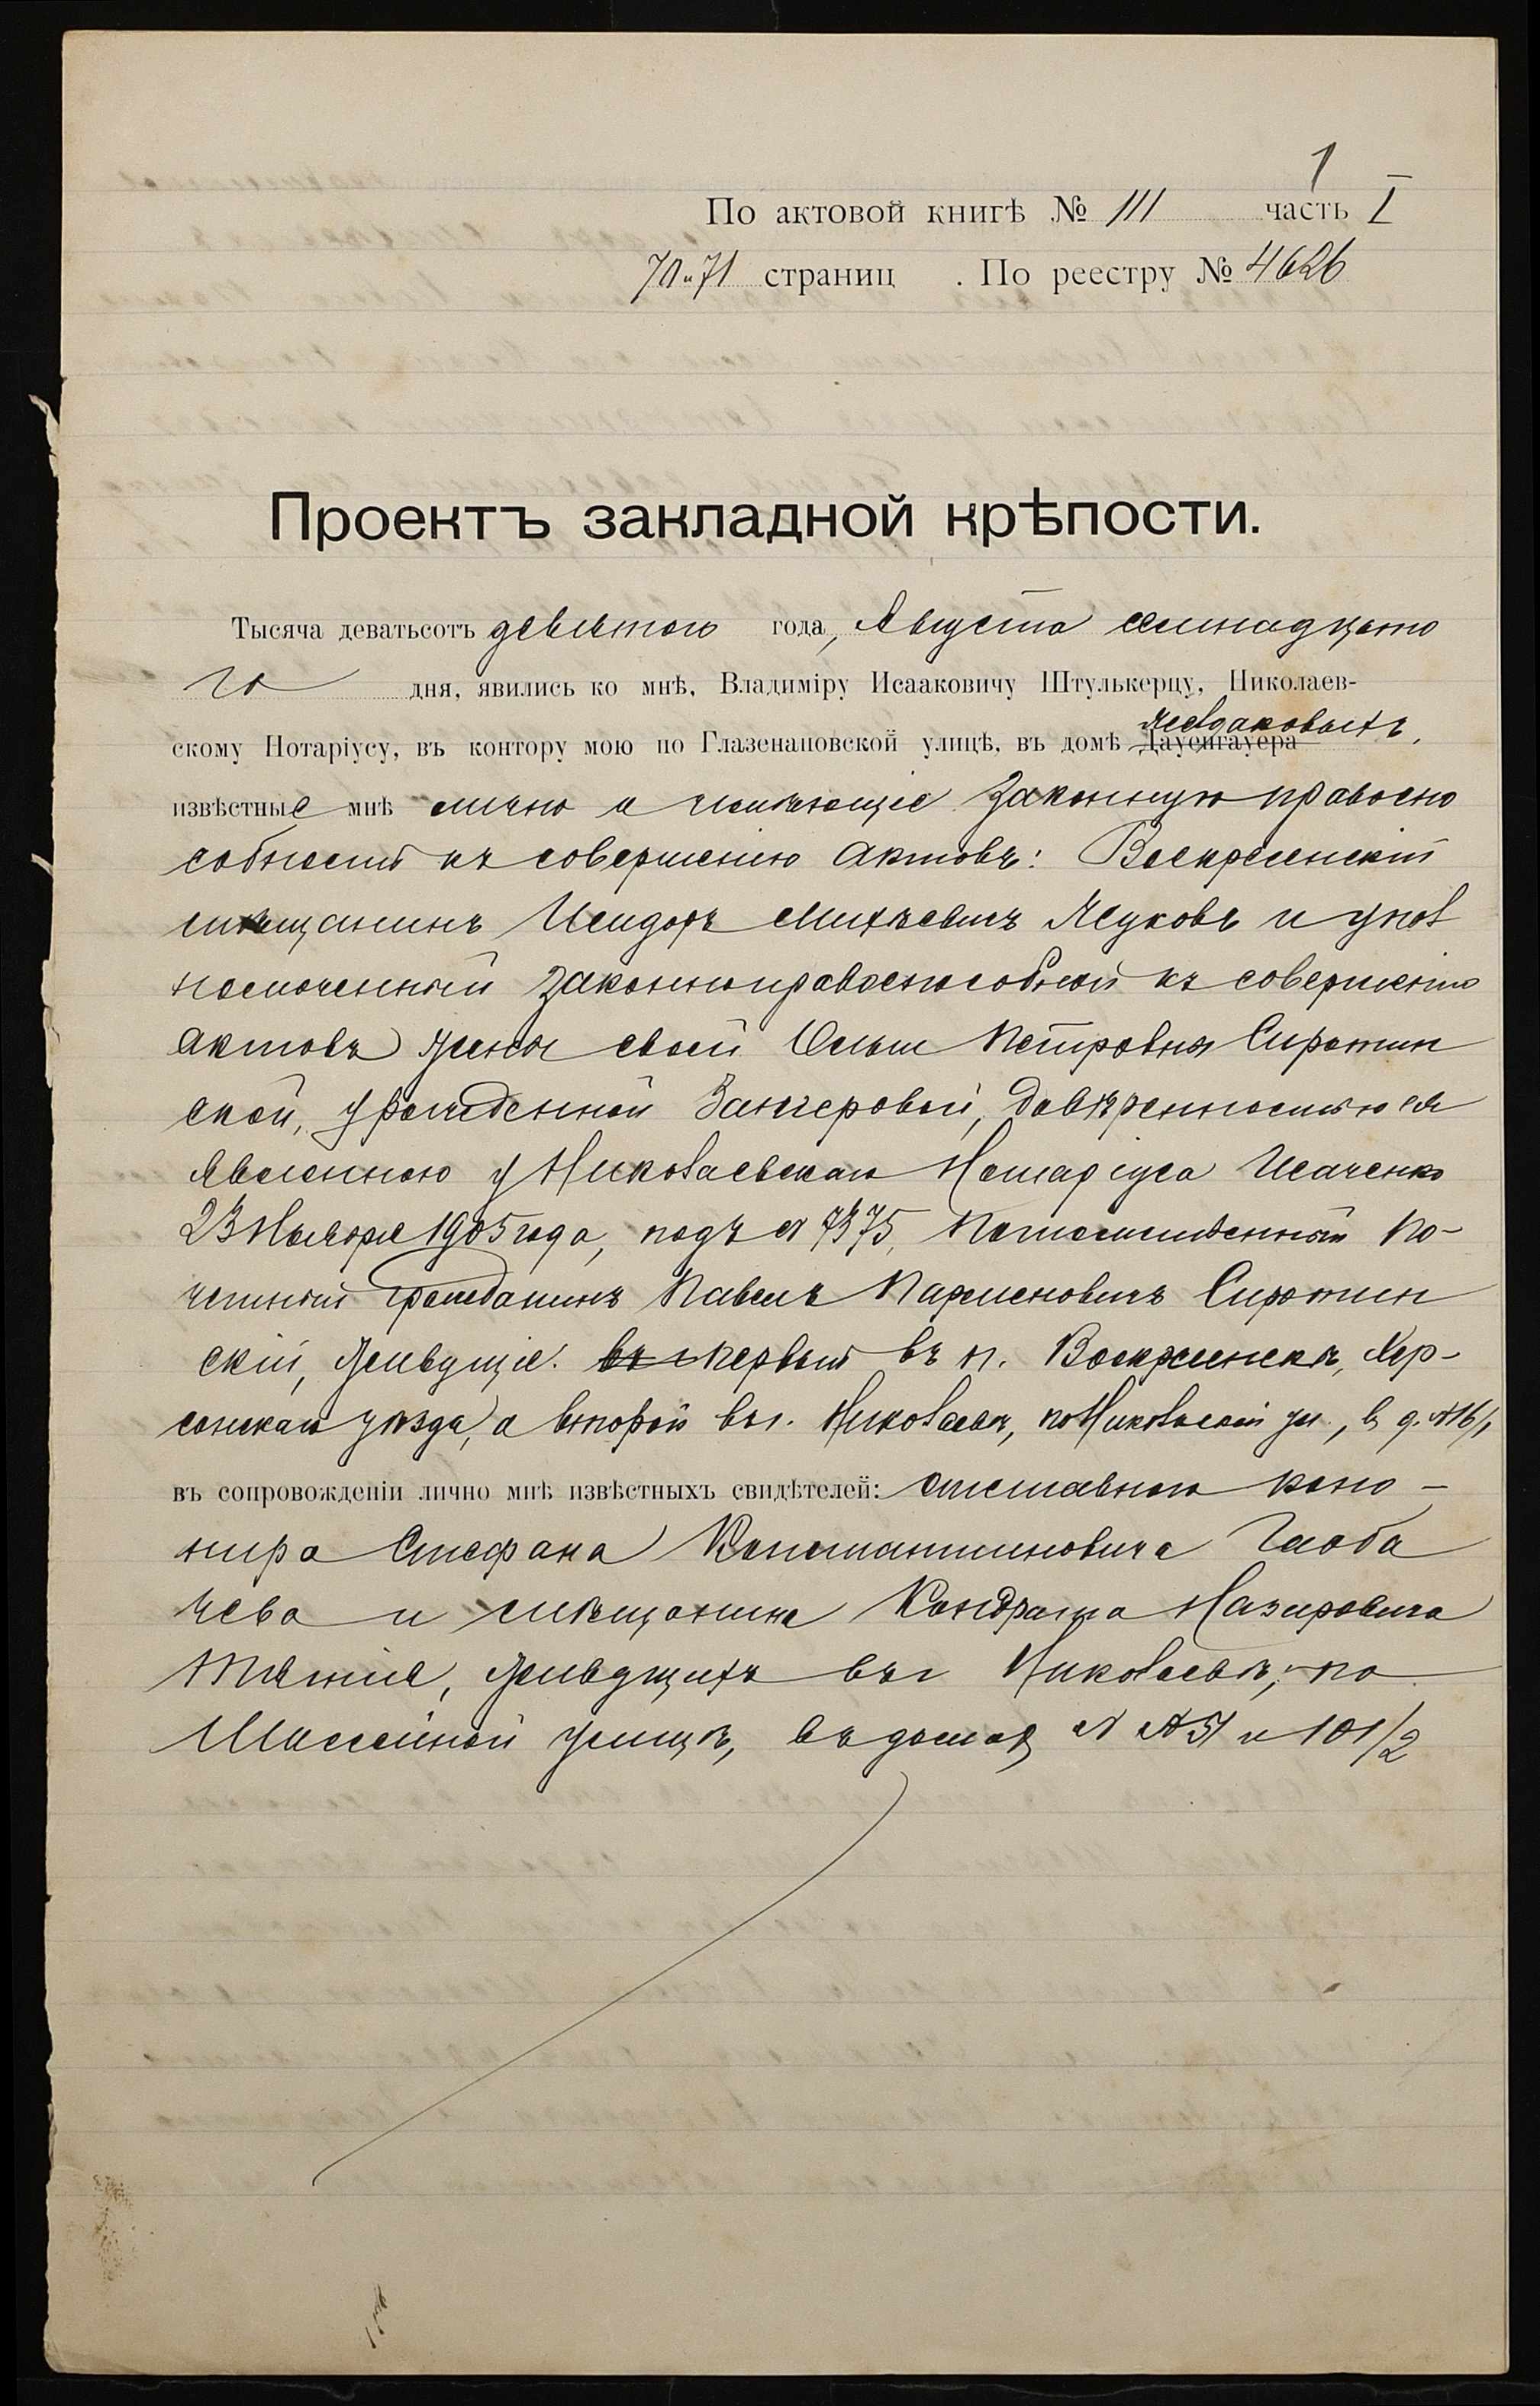 1
По актовой книгѣ № 111 часть I
70 и 71 страниц . По реестру № 4626
Проектъ закладной крѣпости.
Тысяча деватьсотъ девятого года, Августа семнадцато
го дня, явились ко мнѣ, Владиміру Исааковичу Штулькерцу, Николаев-
скому Нотаріусу, въ контору мою по Глазенаповской улицѣ, въ домѣ Даусингауера
извѣстные мнѣ лично и имѣющіе законную правоспо
собность къ совершенію актовъ: Воскресенскій
мѣщанинъ Исидоръ Михѣевичъ Жуковъ и упол
номоченный законноправоспособной къ совершенію
актовъ женой своей Ольгой Петровной Сиротин
ской, урожденной Зангеровой, довѣренностью ея
явленною у Николаевскаго Нотаріуса Исаченко
23 Ноября 1905 года, подъ № 7375, Потомственный По-
четный гражданинъ Павелъ Парменовичъ Сиротин
скій, живущіе: въ первый въ п. Воскресенскѣ, Хер-
сонскаго уѣзда, а второй въ г. Николаевѣ, по Никольской ул., въ д. №16/1
въ сопровожденіи лично мнѣ извѣстныхъ свидѣтелей: отставного кано-
нира Стефана Константиновича Глоба
чева и мѣщанина Кондрата Назаровича
живущихъ въ г Николаевѣ, по
Шоссейной улицѣ, въ домахъ № №51 и 101/2